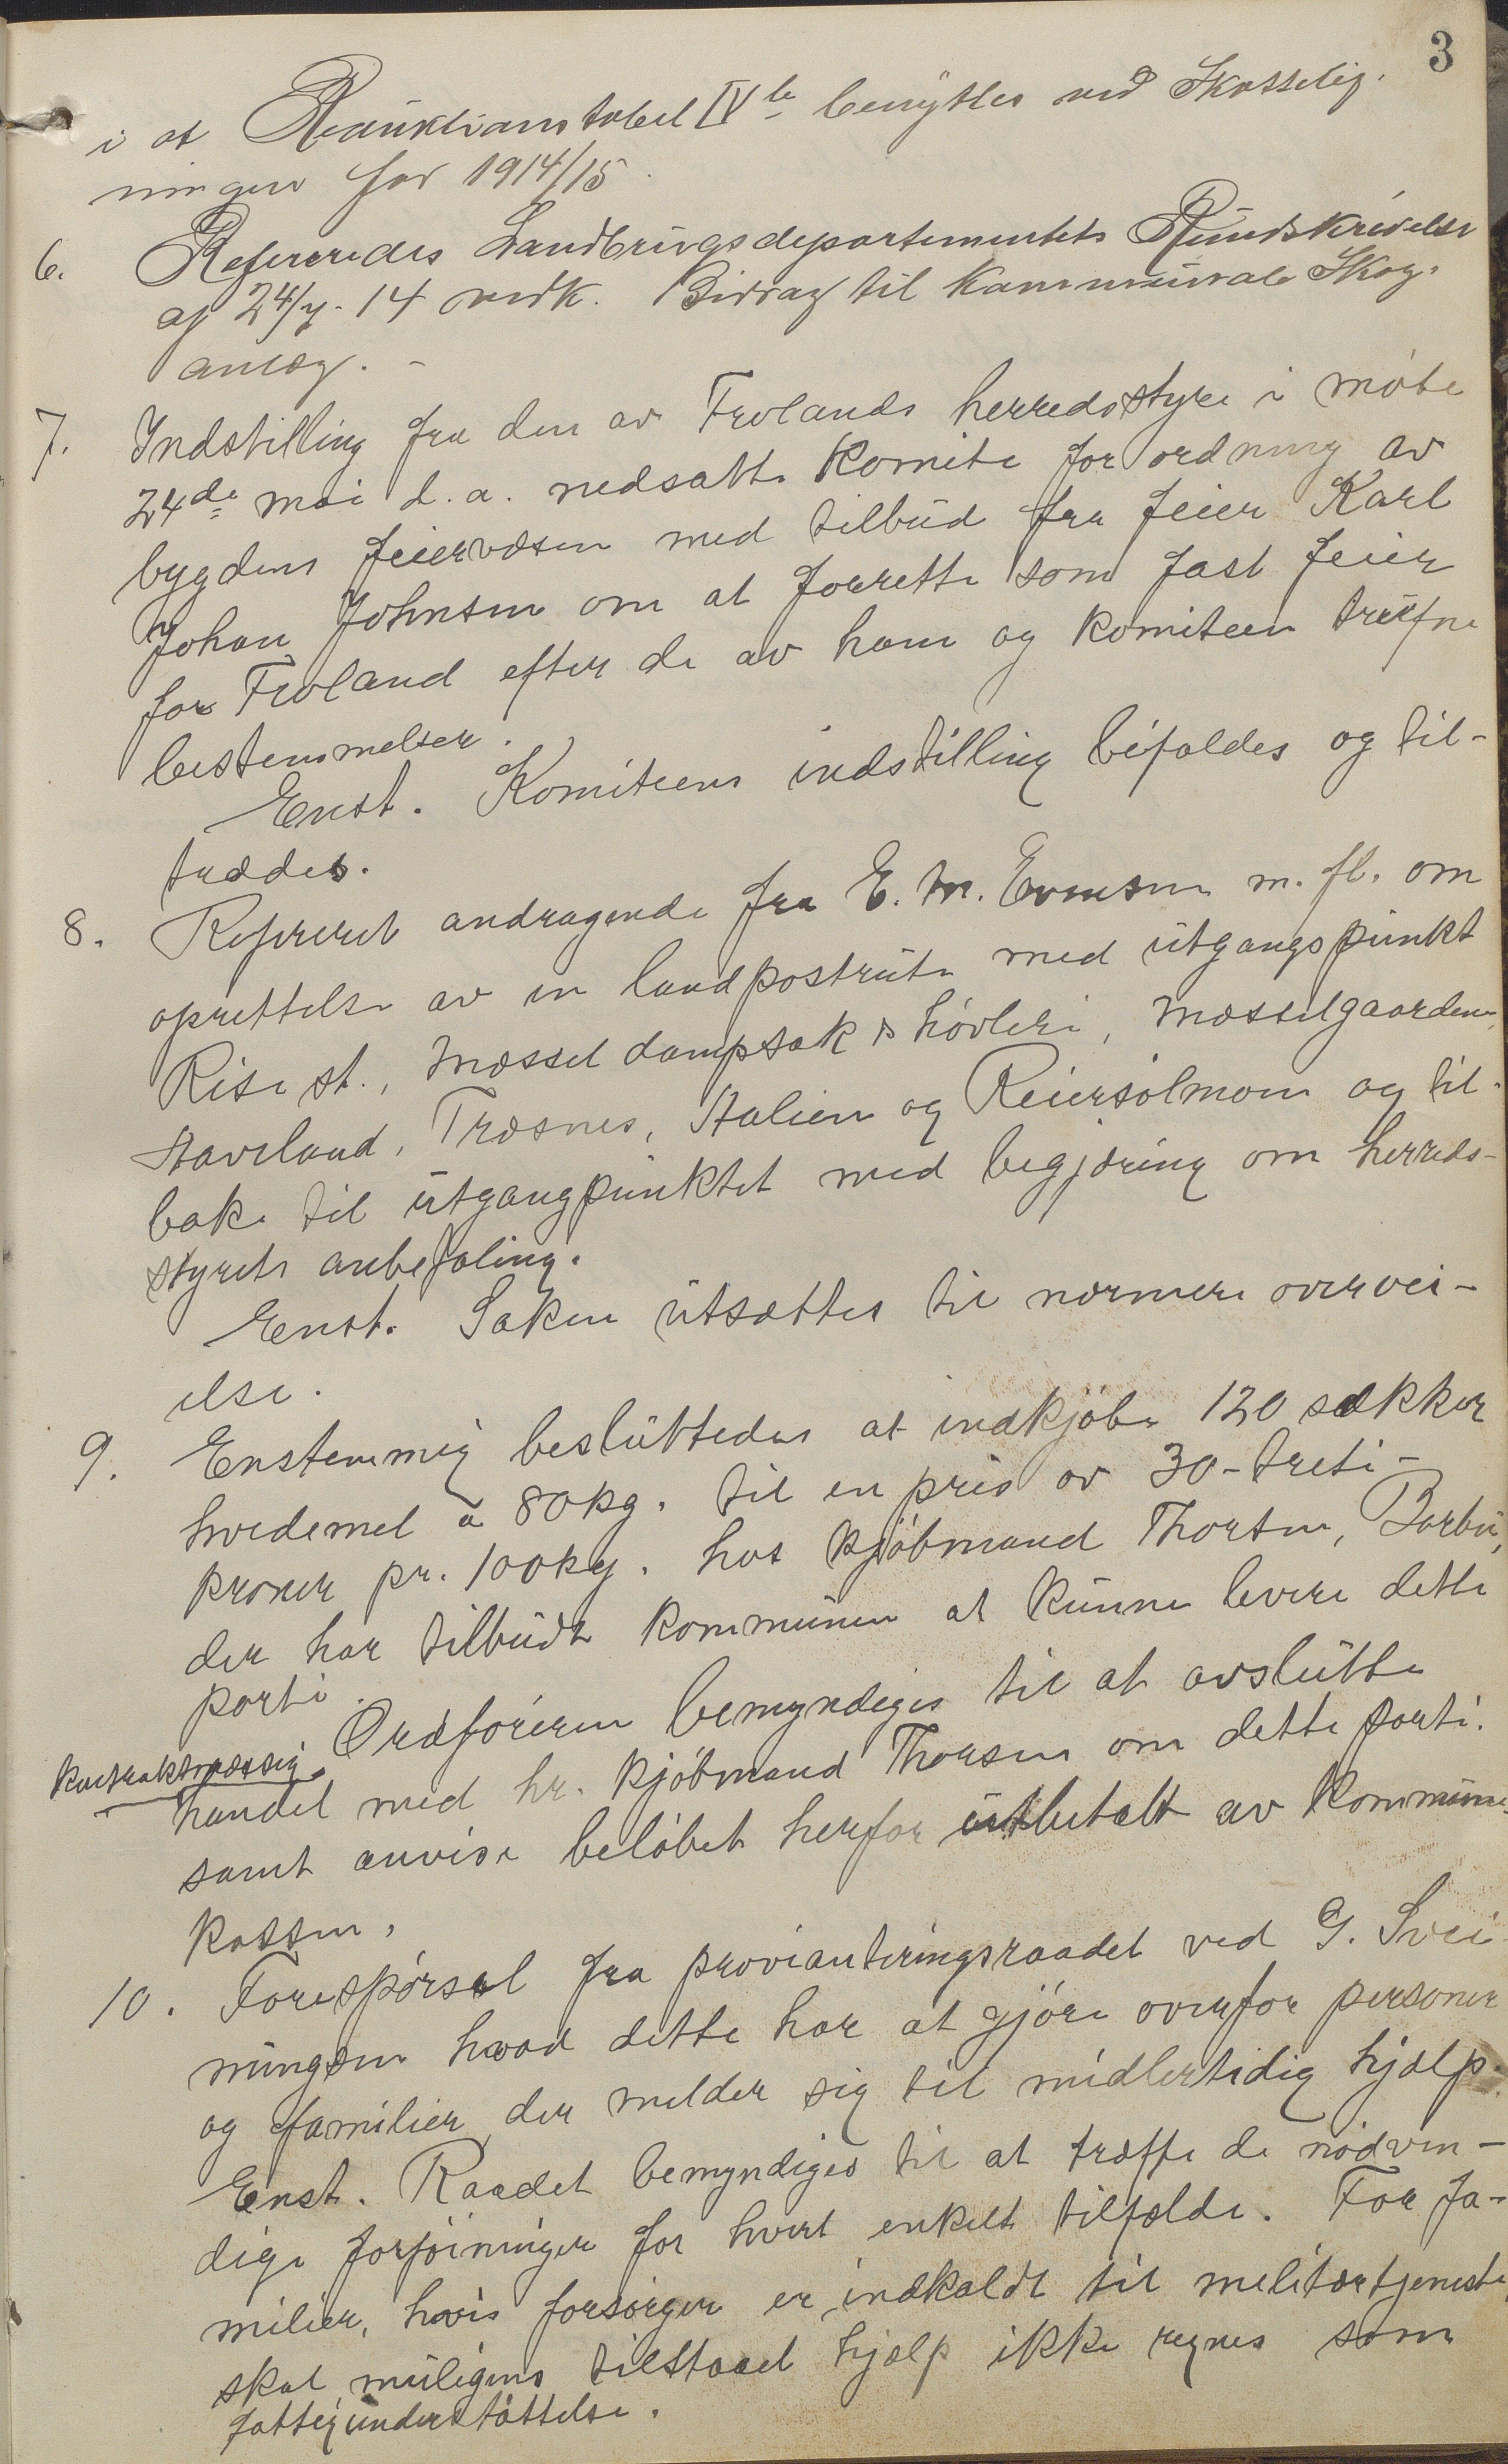 3
i at Reduktionstabel IVb benyttes ved Skattelig-
ningen for 1914/15.
6. Refereredes Landbrugsdepartementets Rundskrivelse
af 24/7-14 vedk. Bidrag til kommunale Skog-
anlæg. -
7. Indstilling fra den av Frolands herredsstyre i møte
24de mai d.a. nedsatte komite for ordning av
bygdens feiervæsen med tilbud fra feier Karl
Johan Johnsen om at forrette som fast feier
for Froland efter de av ham og komiteen trufne
bestemmelser.
Enst. Komiteens indstilling bifaldes og til-
trædes.
8. Refereret andragende fra E. M. Evensen m. fl. om
oprettelse av en landpostrute med utgangspunkt
Rise st., Mæssel dampsak & høvleri, Mæsselgaardene,
Staveland, Træsnes, Stalien og Reiersølmoen og til-
bake til utgangpunktet med begjæring om herreds-
styrets anbefaling.
Enst. Saken utsættes til nærmere overvei-
else.
9. Enstemmig besluttedes at indkjøbe 120 sækker
hvedemel a 80kg. til en pris av 30-treti-
kroner pr. 100kg. hos kjøbmand Thorsen, Barbu,
der har tilbudt kommunen at kunne levere dette
parti.
Ordføreren bemyndiges til at avslutte
kontraktmæssig
handel med hr. kjøbmand Thorsen om dette parti.
samt anvise beløbet herfor utbetalt av kommune-
kassen.
10. Forespørsel fra provianteringsraadet ved G. Svei-
nungsen hvad dette har at gjøre overfor personer
og familier, der melder sig til midlertidig hjælp.
Enst. Raadet bemyndiges til at træffe de nødven-
dige forføininger for hvert enkelt tilfælde. For fa-
milier, hvis forsørger er indkaldt til militærtjeneste,
skal muligens tilstaaet hjælp ikke regnes som
fattigunderstøttelse.